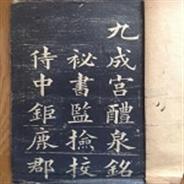 九成宫醴泉銘
祕書監撿挍
侍中鉅鹿郡